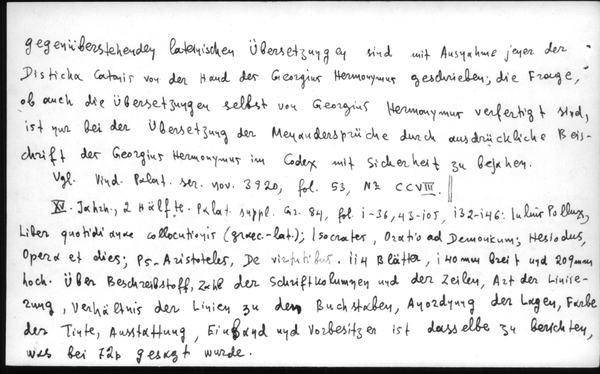 gegenüberstehenden lateinischen Übersetzungen sind mit Ausnahme jener der
Disticha Catonis von der Hand des Georgius Hermonymus geschrieben; die Frage,
ob auch die Übersetzungen selbst von Georgius Hermonymus verfertigt sind,
ist nur bei der Übersetzung der Menandersprüche durch ausdrückliche Beis-
chrift des Georgius Hermonymus im Codex mit Sicherheit zu bejahen.
Vgl. Vind. Palat. ser. nov. 3920, fol. 53, No CCVIII.
XV. Jahrh., 2 Hälfte. Palat. suppl. Gr. 84, fol. 1-36, 43-105, 132-146: Iulius Pollux,
Liber quotidianae collocutionis (graec.-lat.); Isocrates, Oratio ad Demonicum; Hesiodus,
Opera et dies; Ps-Aristoteles, De virtutibus. 114 Blätter, 140mm breit und 209mm
hoch. Über Beschreibstoff, Zahl der Schriftkolumnen und der Zeilen, Art der Linije-
rung, Verhältnis der Linien zu den Buchstaben, Anordnung der Lagen, Farbe
der Tinte, Ausstattung, Einband und Vorbesitzer ist dasselbe zu berichten,
was bei 72b gesagt wurde.